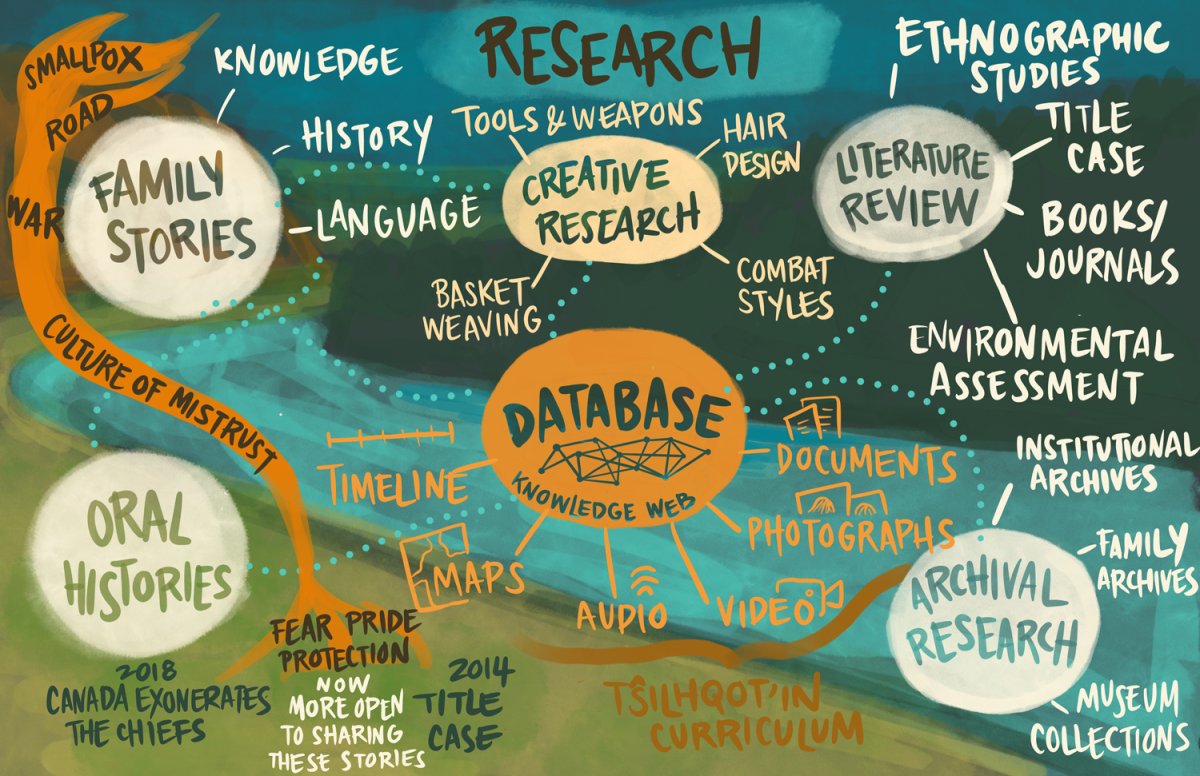 RESEARCH
SMALLPOX
ROAD
WAR
CULTURE OF MISTRUST
FAMILY
STORIES
KNOWLEDGE
HISTORY
LANGUAGE
CREATIVE
RESEARCH
TOOLS & WEAPONS
HAIR
DESIGN
BASKET
WEAVING
COMBAT
STYLES
LITERATURE
REVIEW
ETHNOGRAPHIC
STUDIES
TITLE
CASE
BOOKS/
JOURNALS
ENVIRONMENTAL
ASSESSMENT
DATABASE
KNOWLEDGE WEB
TIMELINE
MAPS
AUDIO
VIDEO
PHOTOGRAPHS
DOCUMENTS
ORAL
HISTORIES
ARCHIVAL
RESEARCH
INSTITUTIONAL
ARCHIVES
FAMILY
ARCHIVES
MUSEUM
COLLECTIONS
FEAR PRIDE
PROTECTION
2018
CANADA EXONERATES
THE CHIEFS
NOW
MORE OPEN
TO SHARING
THESE STORIES
2014
TITLE
CASE
TŜILHQOT'IN
CURRICULUM